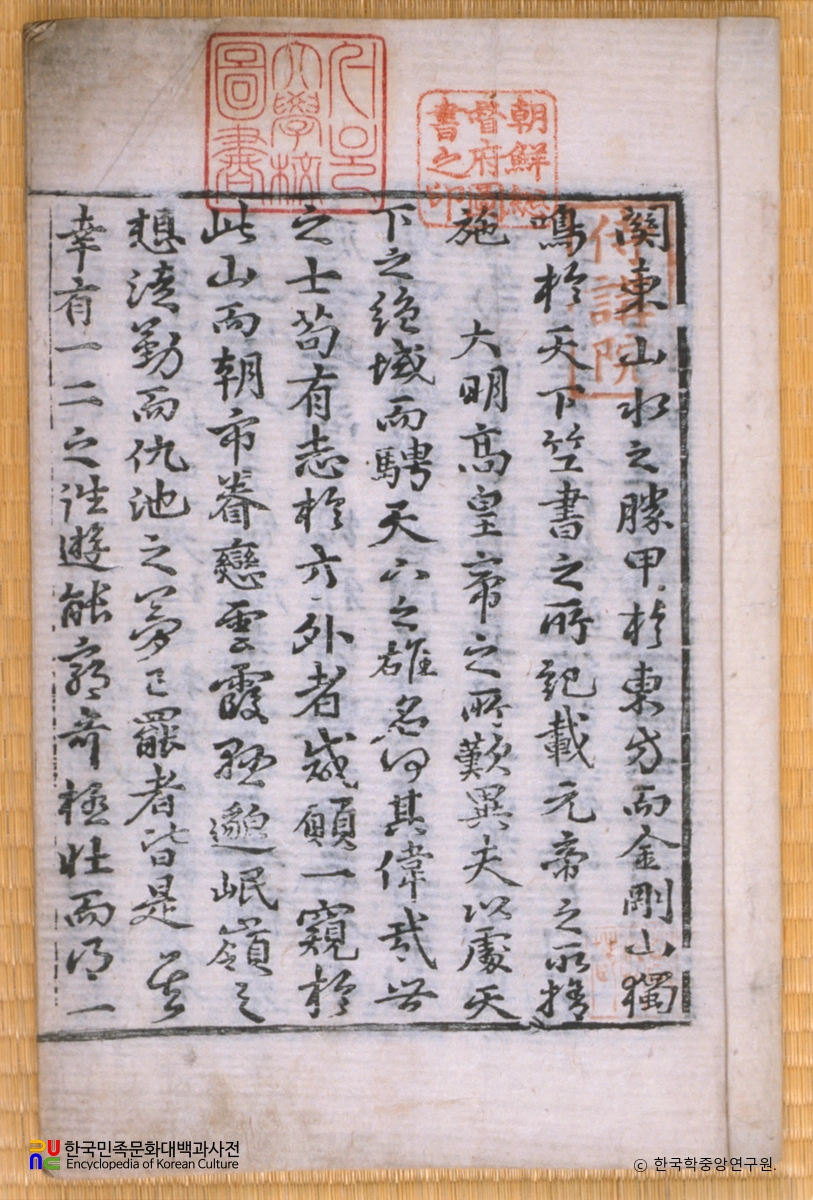 關東山水之勝甲於東方而金剛山獨
鳴於天下竺書之所記載元帝之所捨
施　大明高皇帝之所歎異夫以處天
下之絶域而騁天下之雄名何其偉哉世
之士苟有志於六外者咸願一窺於
此山而朝市眷戀雲霞邈岷嶺之
想淒勤而仇池之夢已罷者皆是
幸有一二之遊能奇極壯而一
朝鮮總
督府圖
書之印
서울
大學校
圖書
侍講院
한국민족문화대백과사전
Encyclopedia of Korean Culture
© 한국학중앙연구원.